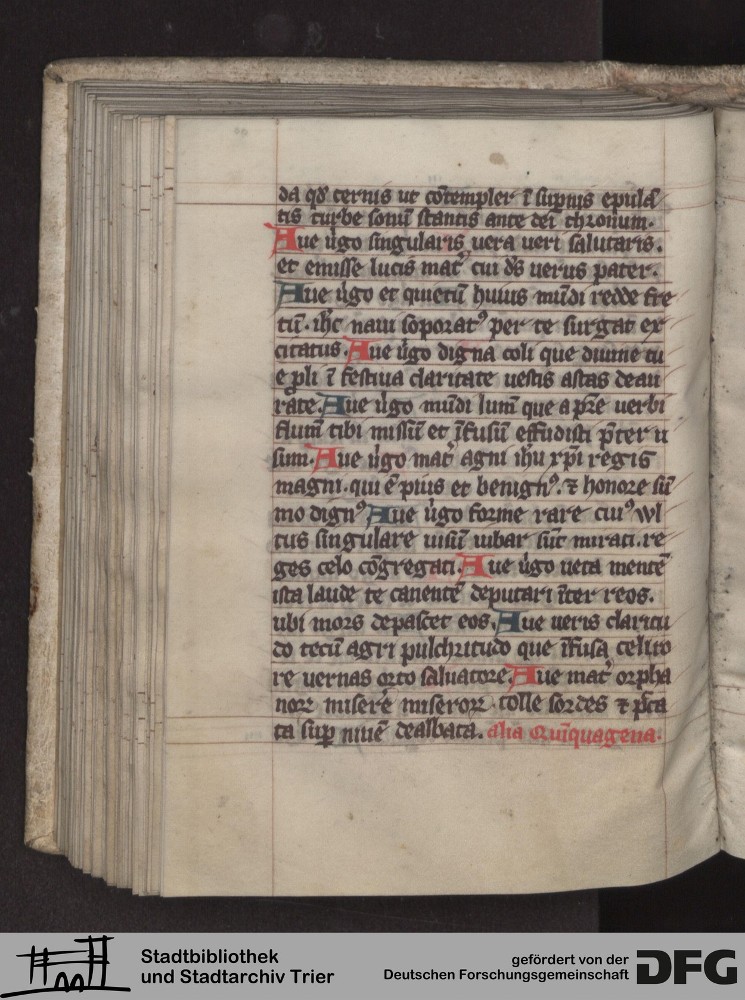 da qđ cernis ut cōtempler ī supnis epula
tis turbe sonū stantis ante dei thronum.
Aue ůgo singularis uera ueri salutaris.
et emisse lucis mat᷑ cui ds̄ uerus pater.
Aue ůgo et quietū huius mūdi redde fre
tū. ih̄c naui soporatꝰ per te surgat ex
citatus. Aue ůgo digna coli que diuine tu
e ꝓli ī festiua claritate uestis astas deau
rate. Aue ůgo mūdi lum̄ que a pr̄e uerbi
flum̄ tibi missū et īfusū effudisti p̄ter u
sum. Aue ůgo mat᷑ agni ihū xp̄i regis
magni. qui ē pius et benignꝰ. ⁊ honore sū
mo dignꝰ Aue ůgo forme rare cuiꝰ wl
tus singulare uisū iubar sūt mirati. re
ges celo cōgregati. Aue ůgo ueta mentē
ista laude te canentē deputari īter reos.
ubi mors depascet eos. Aue ueris claritu
do tecū agri pulchritudo que īfusa celito
re uernas orto saluatore. Aue mat᷑ orpha
noꝝ miserē miseroꝝ. tolle sordes ⁊ pc̄ta
ta suꝑ niuē dealbata. alia Quīquagena.
Stadtbibliothek
und Stadtarchiv Trier
gefördert von der
Deutschen Forschungsgemeinschaft
DFG